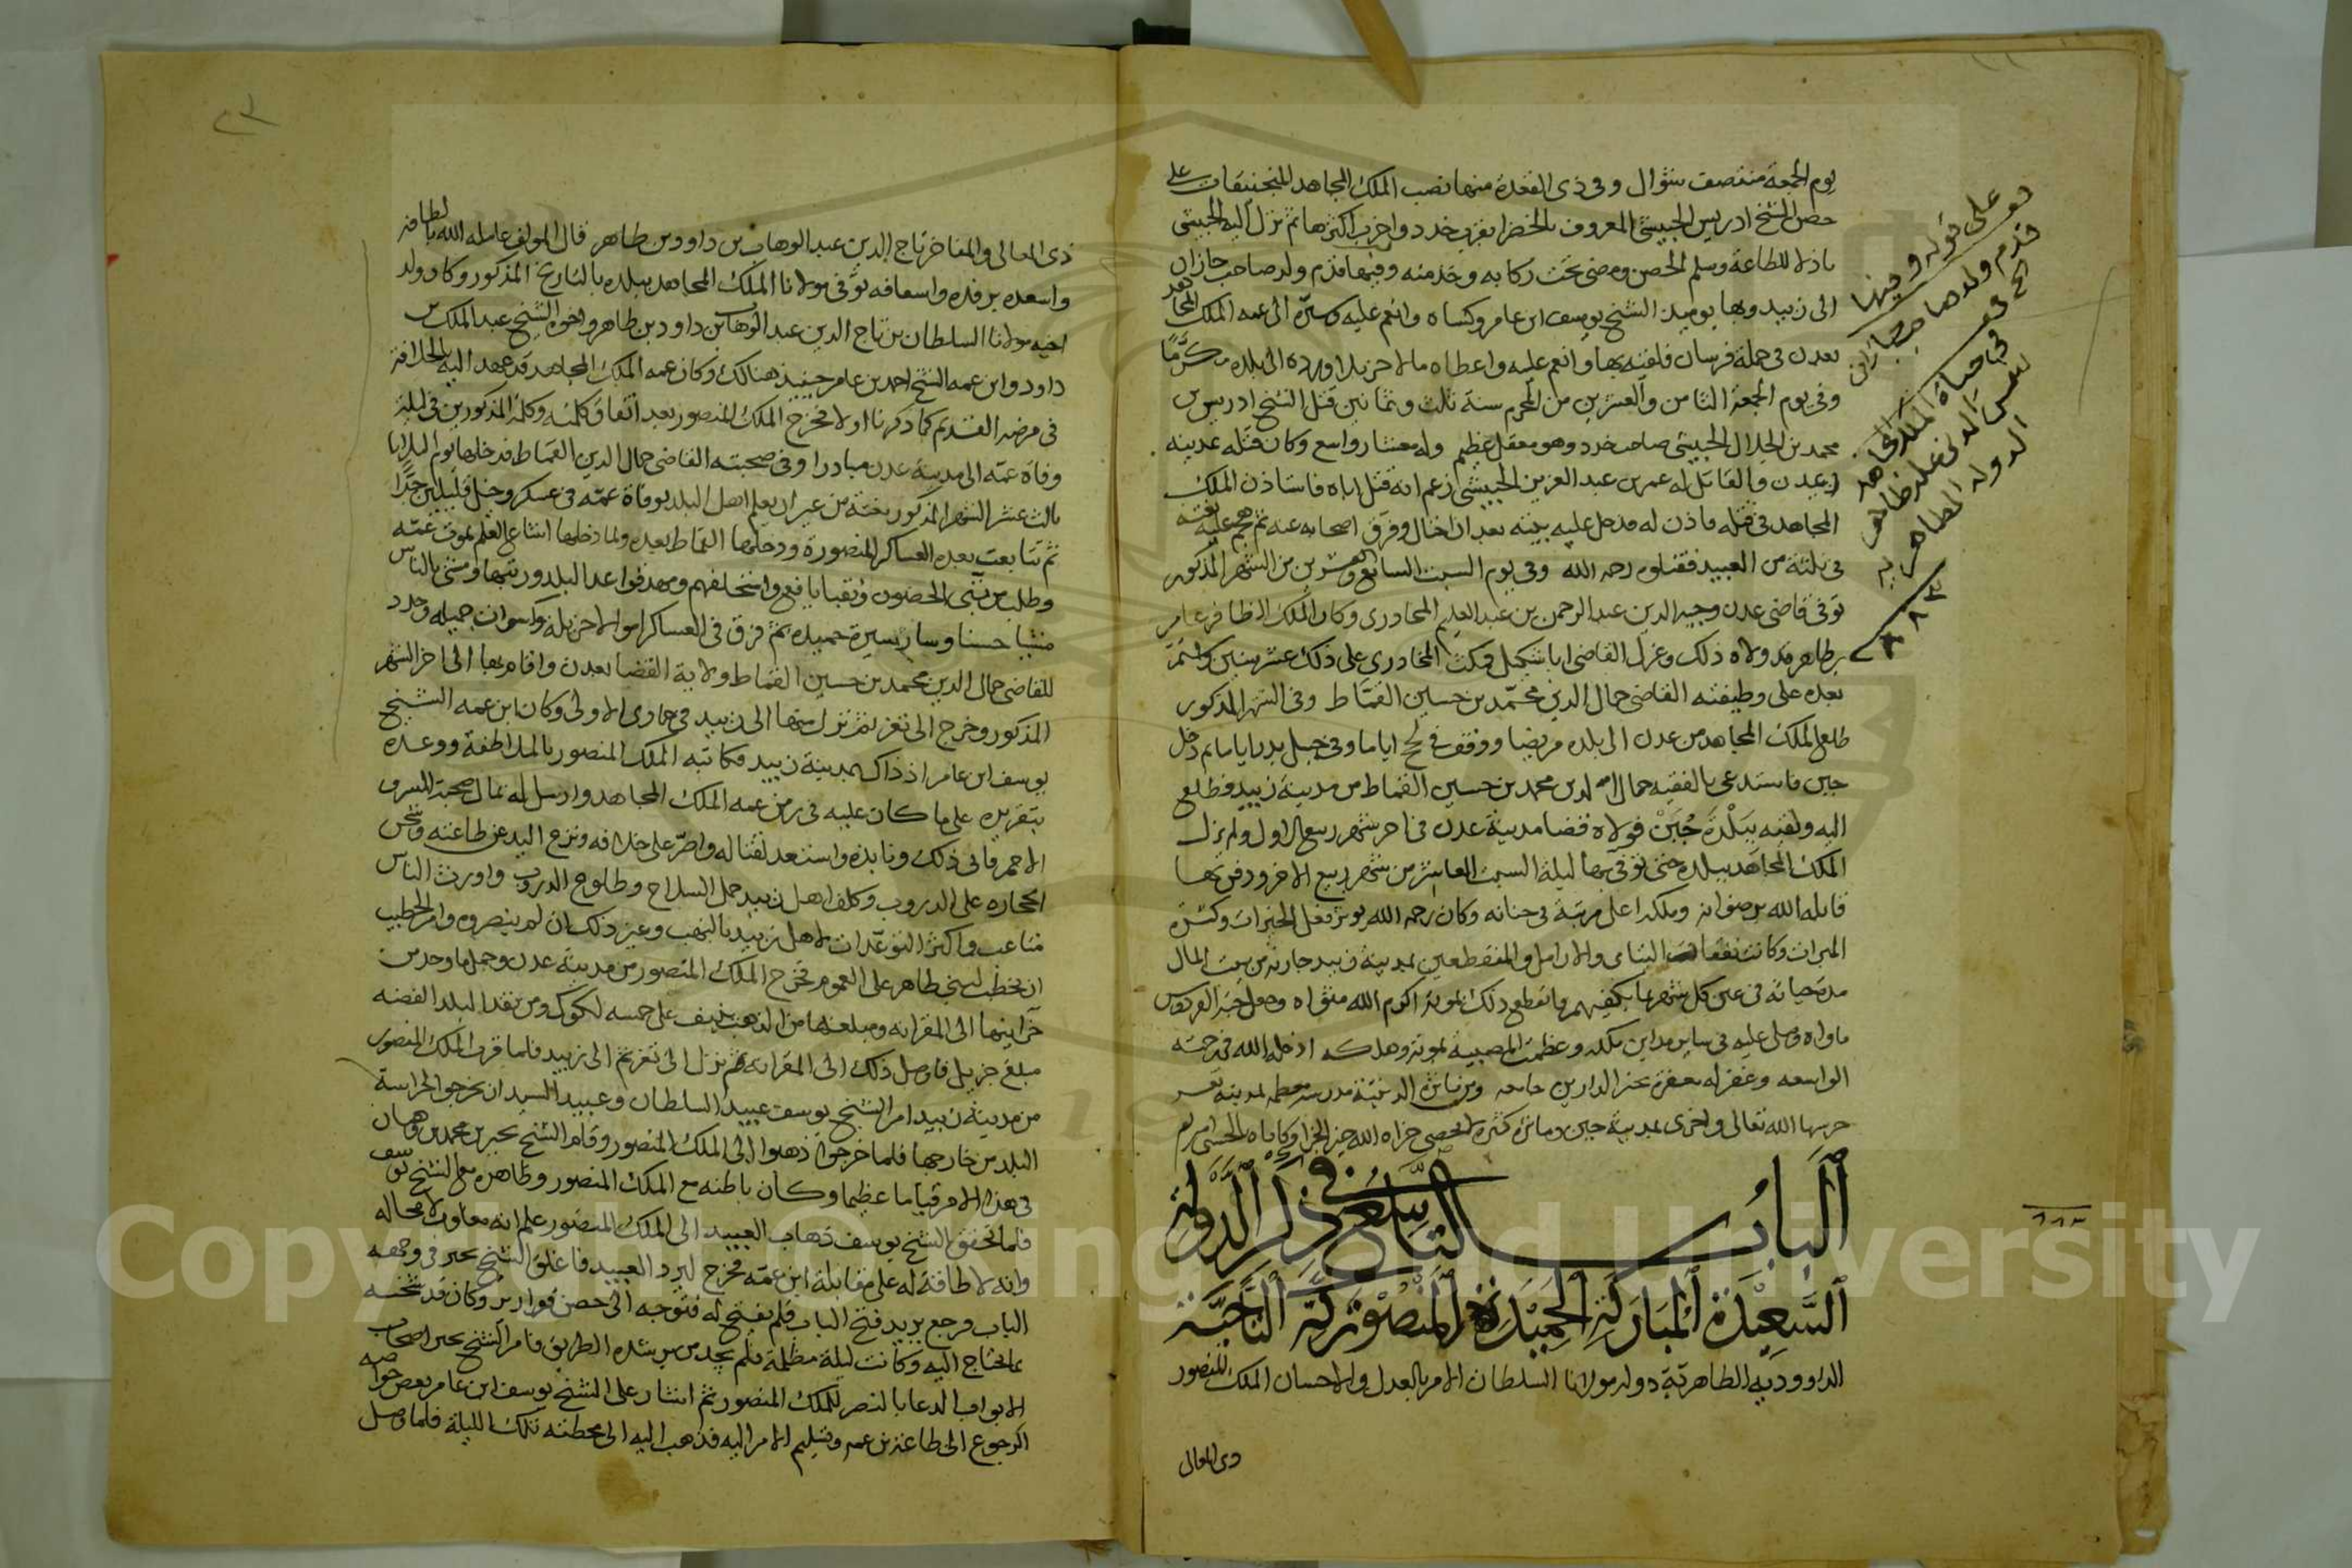 يوم الجمعة منتصف شوال وفي ذي القعدة منها نصب الملك المجاهد المنجنيقات على
حصن الشيخ ادريس الحبيشي المعروف بالخضرا بقرب خدد واخرب اكثرها ثم نزل اليه الحبيشي
باذلا للطاعة وسلم الحصن ومضى تحت ركابه وخدمته وفيها قدم ولد صاحب جازان
الى زبيد وبها يوميذ الشيخ يوسف ابن عامر وكساه وانعم عليه وسيره الى عمه الملك المجاهد
بعدن في جملة فرسان فلقيه بها وانعم عليه واعطاه مالا جزيلا ورده الى بلده مكرما
وفي يوم الجمعة الثامن والعشرين من المحرم سنة ثلث وثمانين قتل الشيخ ادريس بن
محمد بن الجلال الحبيشي صاحب خدد وهو معقل عظيم وله معشار واسع وكان قتله بمدينة
عدن والقاتل له عمر بن عبد العزيز الحبيشي زعم انه قتل اباه فاستاذن الملك
المجاهد في قتله فاذن له فدخل عليه بيته بعد ان احتال وفرق اصحابه عنه ثم هجم عليه بغتة
في ثلثة من العبيد فقتلوه رحمه الله وفي يوم السبت السابع وعشرين من الشهر المذكور
توفي قاضي عدن وجيه الدين عبد الرحمن بن عبد العليم المحادري وكان الملك الظافر عامر
بن طاهر قد ولاه ذلك وعزل القاضي ابا شكيل فمكث المحادري على ذلك عشر سنين واستمر
بعده على وظيفته القاضي جمال الدين محمد بن حسين القماط وفي الشهر المذكور
طلع الملك المجاهد من عدن الى بلده مريضا ووقف في لحج اياما وفي جبل بدر اياما ثم دخل
جبن فاستدعى بالفقيه جمال الدين محمد بن حسين القماط من مدينة زبيد فطلع
اليه ولقيه ببلدة جبن فولاه قضا مدينة عدن في اخر شهر ربيع الاول ولم يزل
الملك المجاهد ببلده حتى توفي بها ليلة السبت العاشر من شهر ربيع الاخر ودفن بها
قابله الله برضوانه وملكه اعلى مرتبة في جنانه وكان رحمه الله يوثر فعل الخيرات وكثرة
المبرات وكانت نفقات اليتامى والارامل والمنقطعين بمدينة زبيد جارية من بيت المال
مدة حياته في عين كل شهر ما يكفيهم وانقطع ذلك بموته اكرم الله مثواه وجعل جنة الفردوس
ماواه وصلي عليه في ساير مداين ملكه وعظمت المصيبة بموته وهلكه ادخله الله في رحمته
الواسعه وغفر له مغفرة بخير الدارين جامعه ومن مآثره الدينية مدرسة معظمه بمدينة تعز
حرسها الله تعالى واخرى بمدينة جبن ومآثره كثيرة لا تحصى جزاه الله خير الجزا وكافاه بالحسنى امين
الباب التاسع في ذكر الدولة
السعيدة المباركة الحميدة المنصورية التاجية
الداوودية الطاهرية دولة مولانا السلطان الامر بالعدل والاحسان الملك المنصور
ذي المعالي
قدم ولد صاحب جازان
في حياة الملك المجاهد
شمس الدين علي بن طاهر
الدولة الطاهرية
٨٨٣
٨٨٣
٢٣
ذي المعالي والمفاخر تاج الدين عبد الوهاب بن داود بن طاهر قال المولف عامله الله بالطافه
واسعده برفده واسعافه توفي مولانا الملك المجاهد ببلده بالتاريخ المذكور وكان ولد
اخيه مولانا السلطان تاج الدين عبد الوهاب بن داود بن طاهر واخوه الشيخ عبد الملك بن
داود وابن عمه الشيخ احمد بن عامر حينيذ هنالك وكان عمه الملك المجاهد قد عهد اليه بالخلافة
في مرضه القديم كما ذكرنا اولا فخرج الملك المنصور بعد اتفاق كلمته وكلمة المذكورين في ليلة
وفاة عمه الى مدينة عدن مبادرا وفي صحبته القاضي جمال الدين القماط فدخلها يوم الثلاثا
ثالث عشر الشهر المذكور بغتة من غير ان يعلم اهل البلد بوفاة عمه في عسكر وخيل قليلين جدا
ثم تتابعت بعده العساكر المنصورة ودخلها القماط بعده ولما دخلها اشاع العلم بموت عمه
وطلب من بقي الحصون ونقبا يافع واستحلفهم ومهد قواعد البلد ورتبها ومشى بالناس
مشيا حسنا وسار بسيرة حميدة ثم فرق في العساكر اموالا جزيلة وكسوات جميله وجدد
للقاضي جمال الدين محمد بن حسين القماط ولاية القضا بعدن واقام بها الى اخر الشهر
المذكور وخرج الى تعز ثم نزل منها الى زبيد في جمادى الاولى وكان ابن عمه الشيخ
يوسف ابن عامر اذ ذاك بمدينة زبيد فكاتبه الملك المنصور بالملاطفة ووعده
بتقريره على ما كان عليه في زمن عمه الملك المجاهد وارسل له بمال صحبة الشرف
الاحمر فابى ذلك ونابذه واستعد لقتاله واصر على خلافه ونزع اليد عن طاعته وشحن
الحجارة على الدروب وكلف اهل زبيد حمل السلاح وطلوع الدروب واورث الناس
متاعب واكثر التوعدات لاهل زبيد بالنهب وغير ذلك ان لم ينصروه وامر الخطيب
ان يخطب لبني طاهر على العموم فخرج الملك المنصور من مدينة عدن وحمل ما وجد من
خزاينها الى المقرانة ومبلغها من الذهب نيف على خمسه لكوك ومن نقد البلد الفضه
مبلغ جزيل فاوصل ذلك الى المقرانة ثم نزل الى تعز ثم الى زبيد فلما قرب الملك المنصور
من مدينة زبيد امر الشيخ يوسف عبيد السلطان وعبيد السيد ان يخرجوا لحراسة
البلد من خارجها فلما خرجوا ذهبوا الى الملك المنصور وقام الشيخ بحير بن محمد بن وهبان
في هذا الامر قياما عظيما وكان باطنه مع الملك المنصور وظاهره مع الشيخ يوسف
فلما تحقق الشيخ يوسف ذهاب العبيد الى الملك المنصور علم انه مغلوب لا محاله
وانه لا طاقة له على مقابلة ابن عمه فخرج ليرد العبيد فاغلق الشيخ بحير في وجهه
الباب فرجع يريد فتح الباب فلم يفتح له فتوجه الى حصن قوارير وكان قد شحنه
بما يحتاج اليه وكانت ليلة مظلمة فلم يجد من يرشده الطريق فامر الشيخ بحير اصحاب
الابواب الدعا بالنصر للملك المنصور ثم اشار على الشيخ يوسف ابن عامر بعض خواصه
الرجوع الى طاعة ابن عمه وتسليم الامر اليه فذهب اليه الى محطته تلك الليلة فلما وصل
Copyright © King Saud University